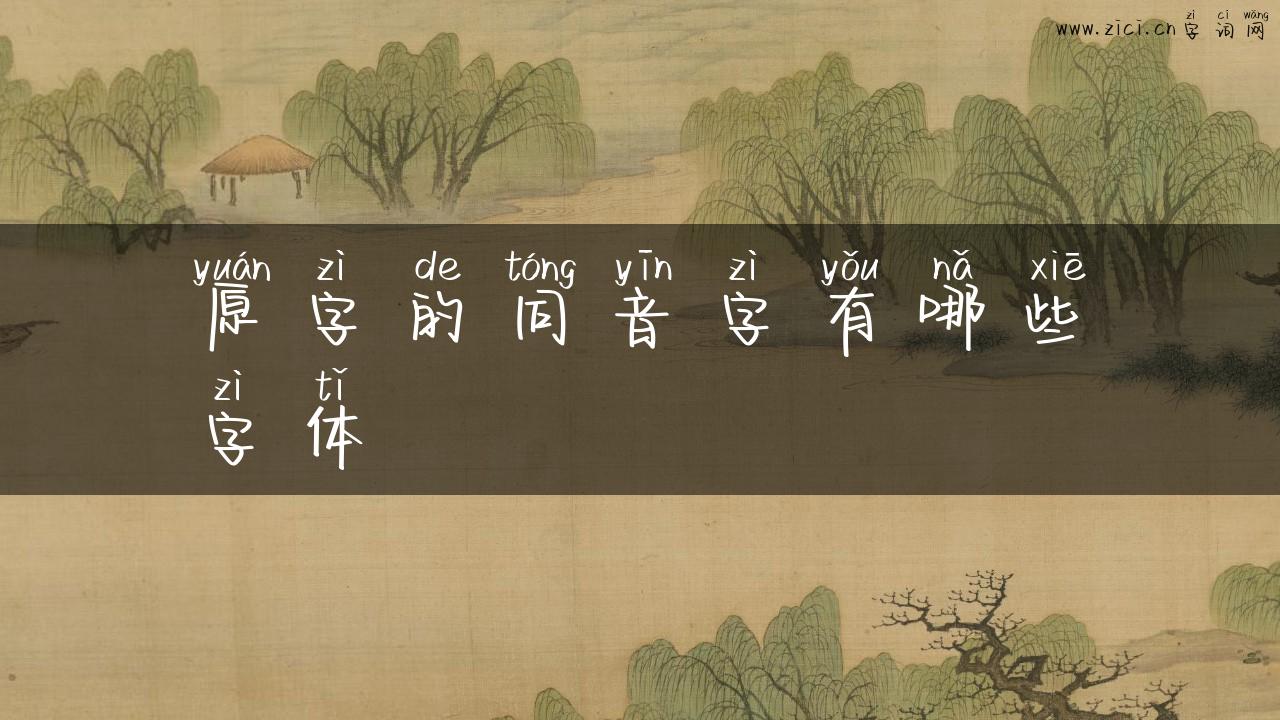 zì cí wǎng
www.zici.cn 字 词 网
yuán zì de tóng yīn zì yǒu nǎ xiē
原 字 的 同 音 字 有 哪 些
zì tǐ
字 体